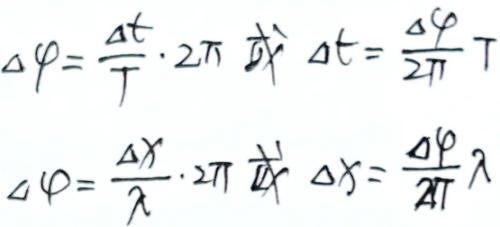 Δφ = Δt/T · 2π 或 Δt = Δφ/2π T
Δφ = Δx/λ · 2π 或 Δx = Δφ/2π λ